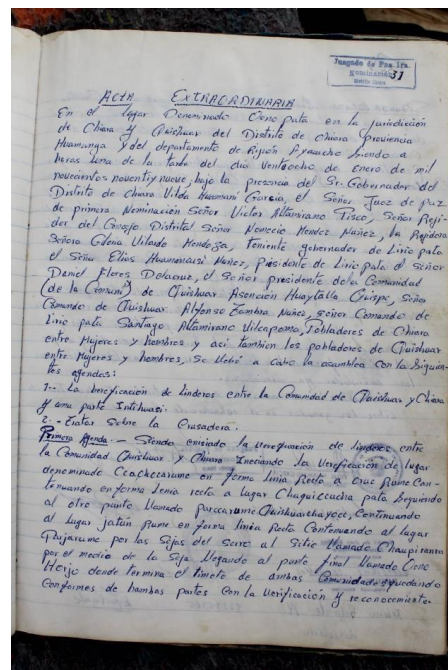 Juzgado de Paz 1ra.
Nominación 31
ACTA EXTRAORDINARIA
En el lugar Denominado Cieno pata en la jurisdicción
de Chiara y Quishuar del Distrito de Chiara provincia
Huamanga y del departamento de Rejión Ayacucho siendo a
horas Una de la tarde del dia Veintiocho de enero de mil
novecientos noventi y nueve, bajo la presencia del Sr. Gobernador del
Distrito de Chiara Vilda Huamani Garcia, el Señor Juez de paz
de primera Nominación Señor Victor Altamirano Tisco, Señor Reji-
dor del Consejo Distrital Señor Nemecio Mendez Nuñez, la Rejidora
Señora Elena Vilando Mendoza, Teniente gobernador de Lirio pata
el Señor Elias Huamancusi Nuñez, presidente de Lirio pata el Señor
Daniel Flores Delacruz, el Señor presidente de la Comunidad
(de la Comuni) de Quishuar Asención Huaytalla Quispe, Señor
Comando de Quishuar Alfonso Zambra Nuñez, señor Comando de
Lirio pata Santiago Altamirano Vilcapoma, Pobladores de Chiara
entre Mujeres y hombres y aci tambien los pobladores de Quishuar
entre Mujeres y hombres, Se llebó a cabo la asamblea con la siguien-
tes agendas:
1.- La bereficación de linderos entre la Comunidad de Quishuar y Chiara
y una parte Intihuasi.
2.- Tratar Sobre la Crusadera.
Primera Agenda.- Siendo eniciado la Verefucación de linderos entre
la Comunidad Quishuar y Chiara Ineciando la Vereficación de lugar
denominado Ccachccarumi en forma linia Recta a cruz Rume Con-
tenuando en forma lenia recta a lugar Chaquiccucha pata Seguiendo
al otro punto llamado parccarumi Quishuarchayocc, Continuando
al lugar jatun Rume en forma linia Recta Contenuando al lugar
Quijarume por las Sejas del Serro al Sitio llamado Chaupi
por el medio de la Seja llegando al punto final llamado Cieno
Horjo donde termina el limete de ambas Comunidades quedando
Conformes de hambas partes Con la Verificación y reconocimiento.